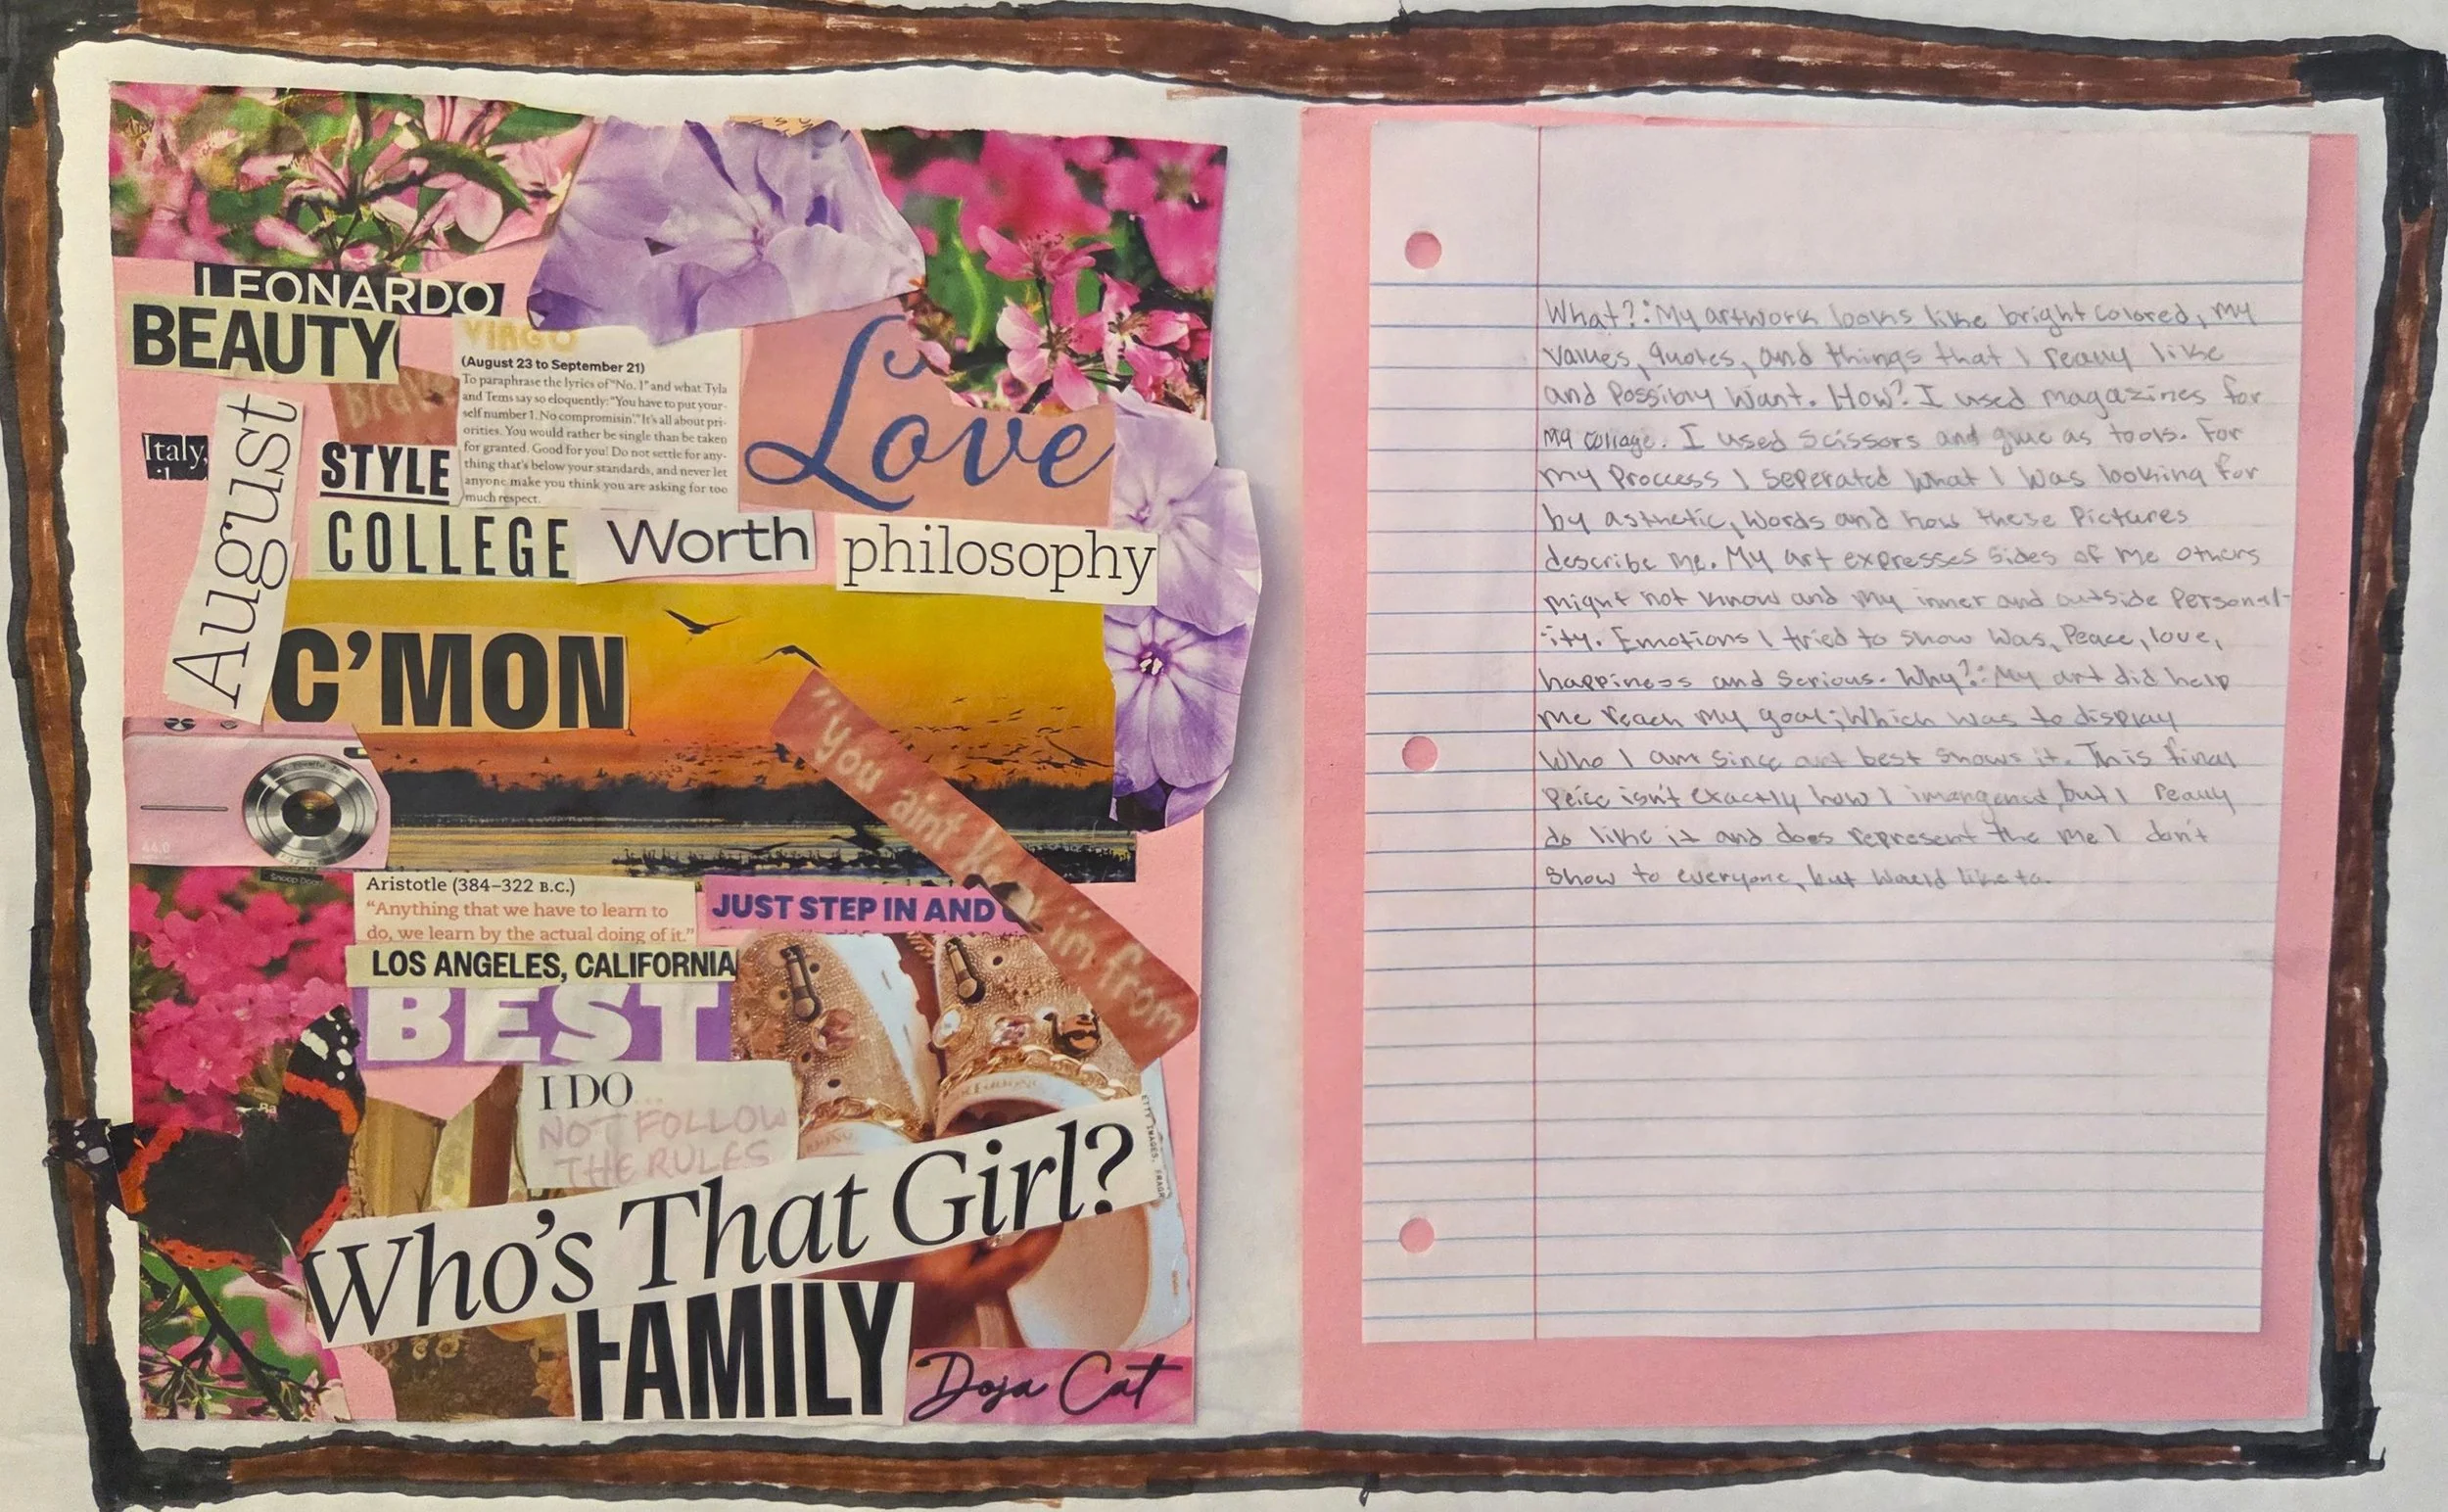 LEONARDO
BEAUTY
VIRGO
(August 23 to September 21)
To paraphrase the lyrics of "No. 1" and what Tyla
and Tems say so eloquently: "You have to put your-
self number 1. No compromisin'." It's all about pri-
orities. You would rather be single than be taken
for granted. Good for you! Do not settle for any-
thing that's below your standards, and never let
anyone make you think you are asking for too
much respect.
Love
Italy,
August
STYLE
COLLEGE
Worth
philosophy
C'MON
"You aint
in from
44.0
Snoop Dogg
Aristotle (384–322 B.C.)
"Anything that we have to learn to
do, we learn by the actual doing of it."
JUST STEP IN AND
LOS ANGELES, CALIFORNIA
BEST
I DO...
NOT FOLLOW
THE RULES
Who's That Girl?
FAMILY
Doja Cat
What?: My artwork looks like bright colored, my
values, quotes, and things that I really like
and Possibly Want. How? I used magazines for
my collage. I used scissors and glue as tools. For
my Proccess I seperated what I was looking for
by asthetic, words and how these Pictures
describe me. My art expresses sides of me others
might not know and my inner and outside Personal-
ity. Emotions I tried to show was, Peace, love,
happiness and Serious. Why?: My art did help
me reach my goal; Which was to display
Who I am since art best shows it. This final
Peice isn't exactly how I imangened, but I really
do like it and does represent the me I don't
show to everyone, but Would like to.